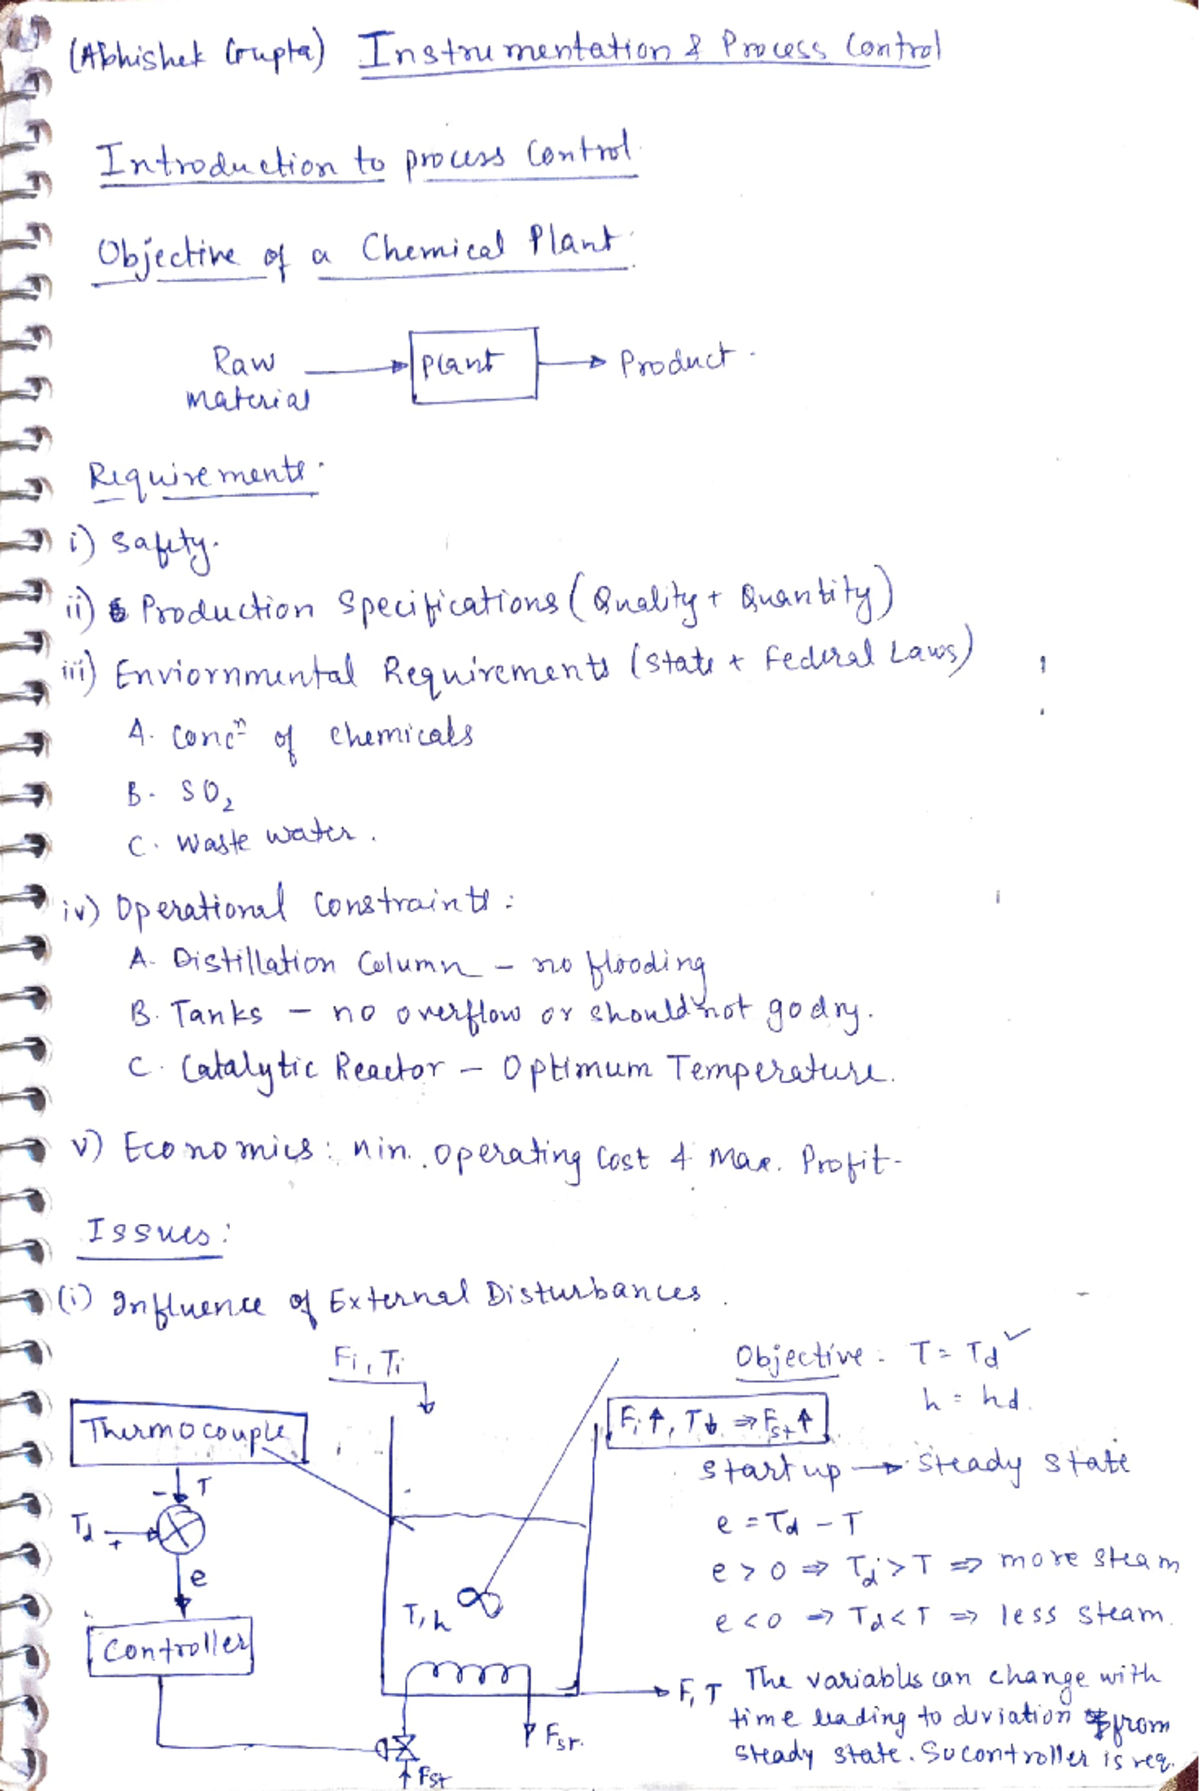 (Abhishek Gupta) Instrumentation & Process Control
Introduction to process Control.
Objective of a Chemical Plant.
Raw material → Plant → Product.
Requirements.
i) Safety.
ii) Production Specifications (Quality + Quantity)
iii) Enviornmental Requirements (State + Federal Laws)
A. Concⁿ of chemicals
B. SO₂
C. Waste water.
iv) Operational Constraints:
A. Distillation Column – no flooding
B. Tanks – no overflow or should not go dry.
C. Catalytic Reactor – Optimum Temperature.
v) Economics: Min. Operating Cost & Max. Profit.
Issues:
(i) Influence of External Disturbances.
Fi, Ti
Objective: T = Td ✓
h = hd.
Thermocouple
Fi ↑, T↓ ⇒ Fst ↑
Startup → Steady state
- T
Td +
e = Td – T
e
e > 0 ⇒ Td > T ⇒ more steam
T, h
e < 0 ⇒ Td < T ⇒ less steam.
Controller
F, T
The variables can change with
time leading to deviation from
steady state. So controller is req.
Fst.
Fst